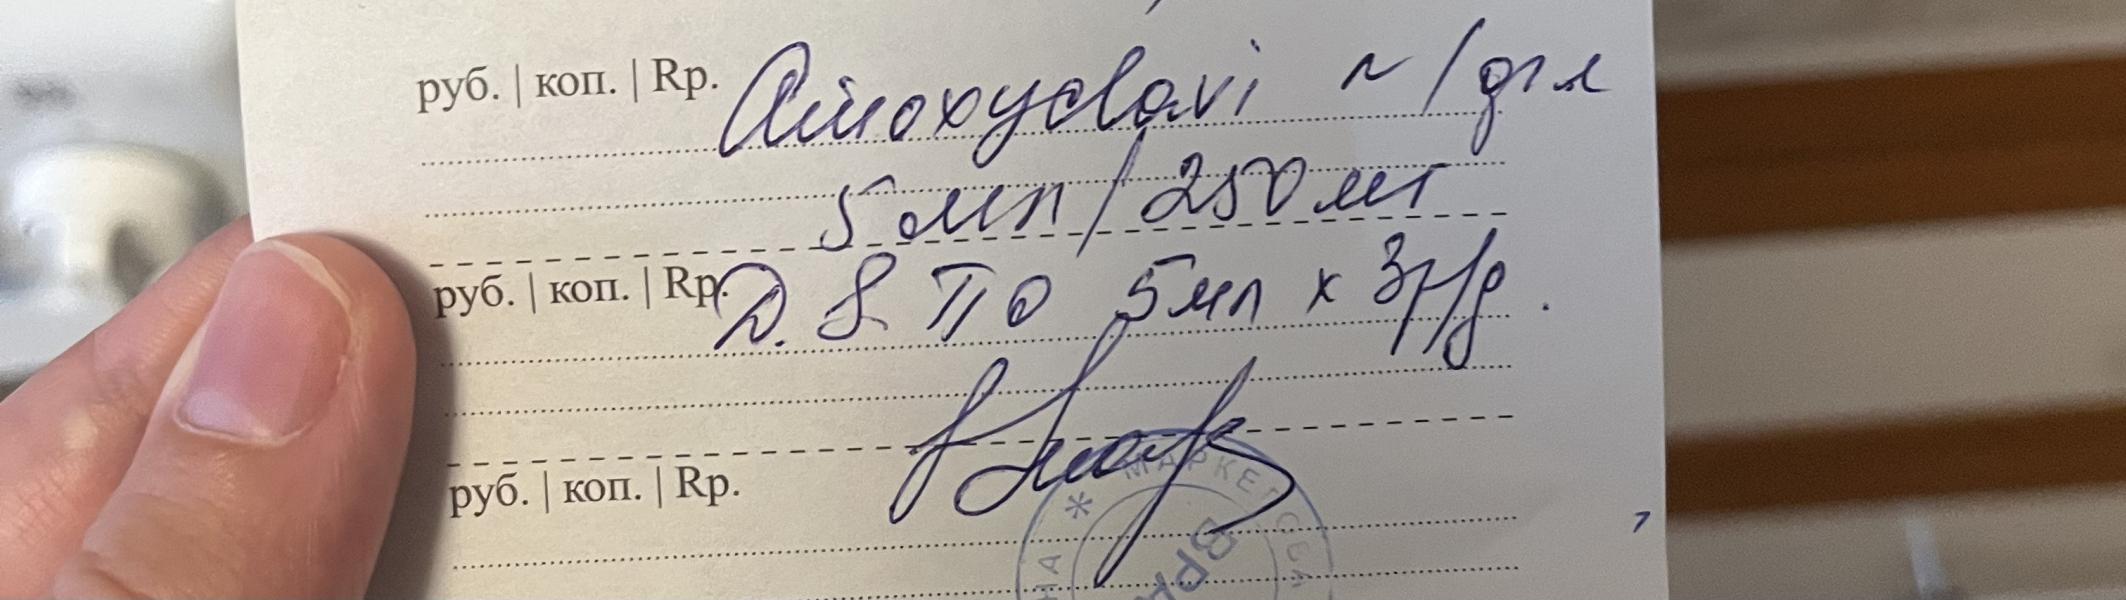 руб. | коп. | Rp. Amoxyclavi
5 мл / 250 мг
руб. | коп. | Rp. D. S. По 5 мл x 3 р/д.
руб. | коп. | Rp.
* МАРКЕ